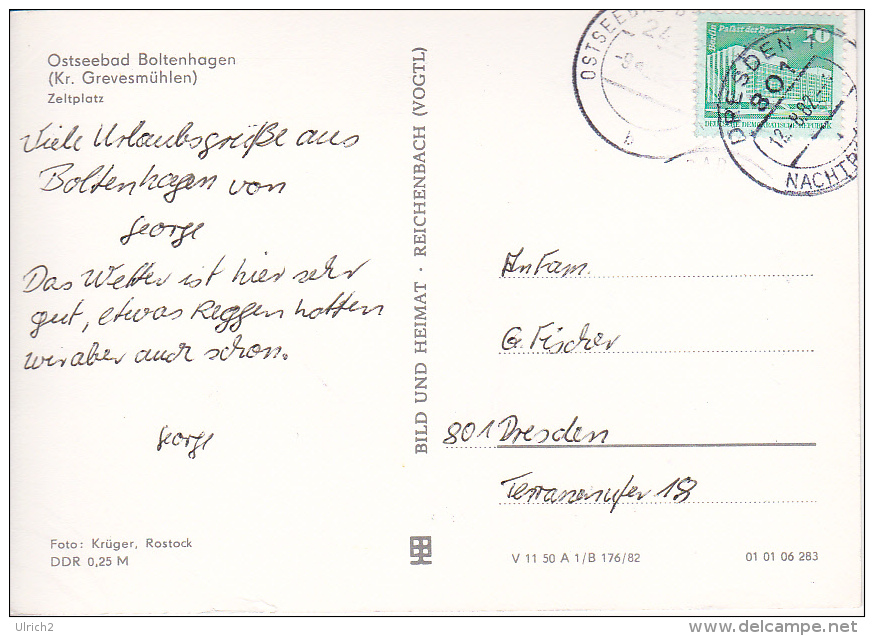 Ostseebad Boltenhagen
(Kr. Grevesmühlen)
Zeltplatz
Viele Urlaubsgrüße aus
Boltenhagen von
George
Das Wetter ist hier sehr
gut, etwas Reggen hatten
wir aber auch schon.
George
Foto: Krüger, Rostock
DDR 0,25 M
BILD UND HEIMAT · REICHENBACH (VOGTL)
OSTSEEBAD
24
-8
b
Berlin Palast der Republik
10
DEUTSCHE DEMOKRATISCHE REPUBLIK
DRESDEN 1
801
12.-8.82
NACHTR
An Fam.
G. Fischer
801 Dresden
Terrassenufer 18
V 11 50 A 1/B 176/82
01 01 06 283
Ulrich2
www.delcampe.net